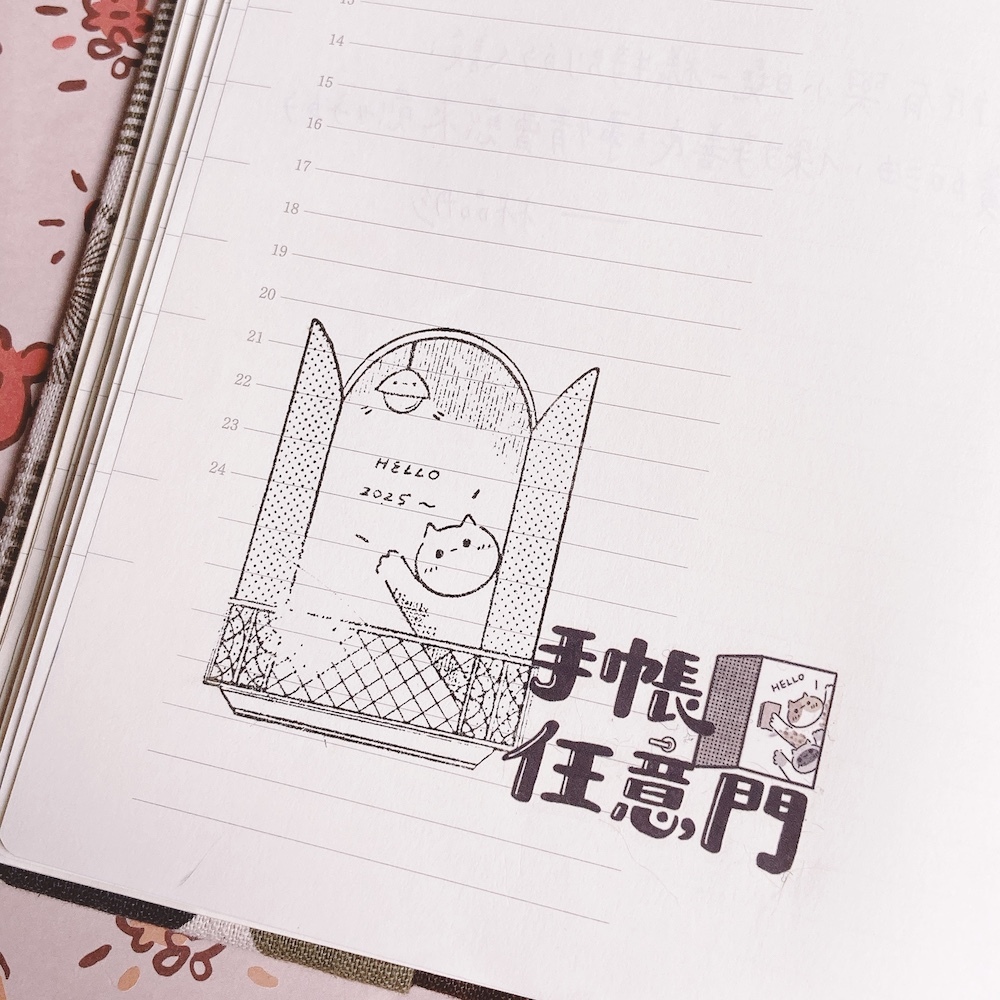 13
14
15
16
17
18
19
20
21
22
23
24
HELLO
2025~
手帳
HELLO
任意門